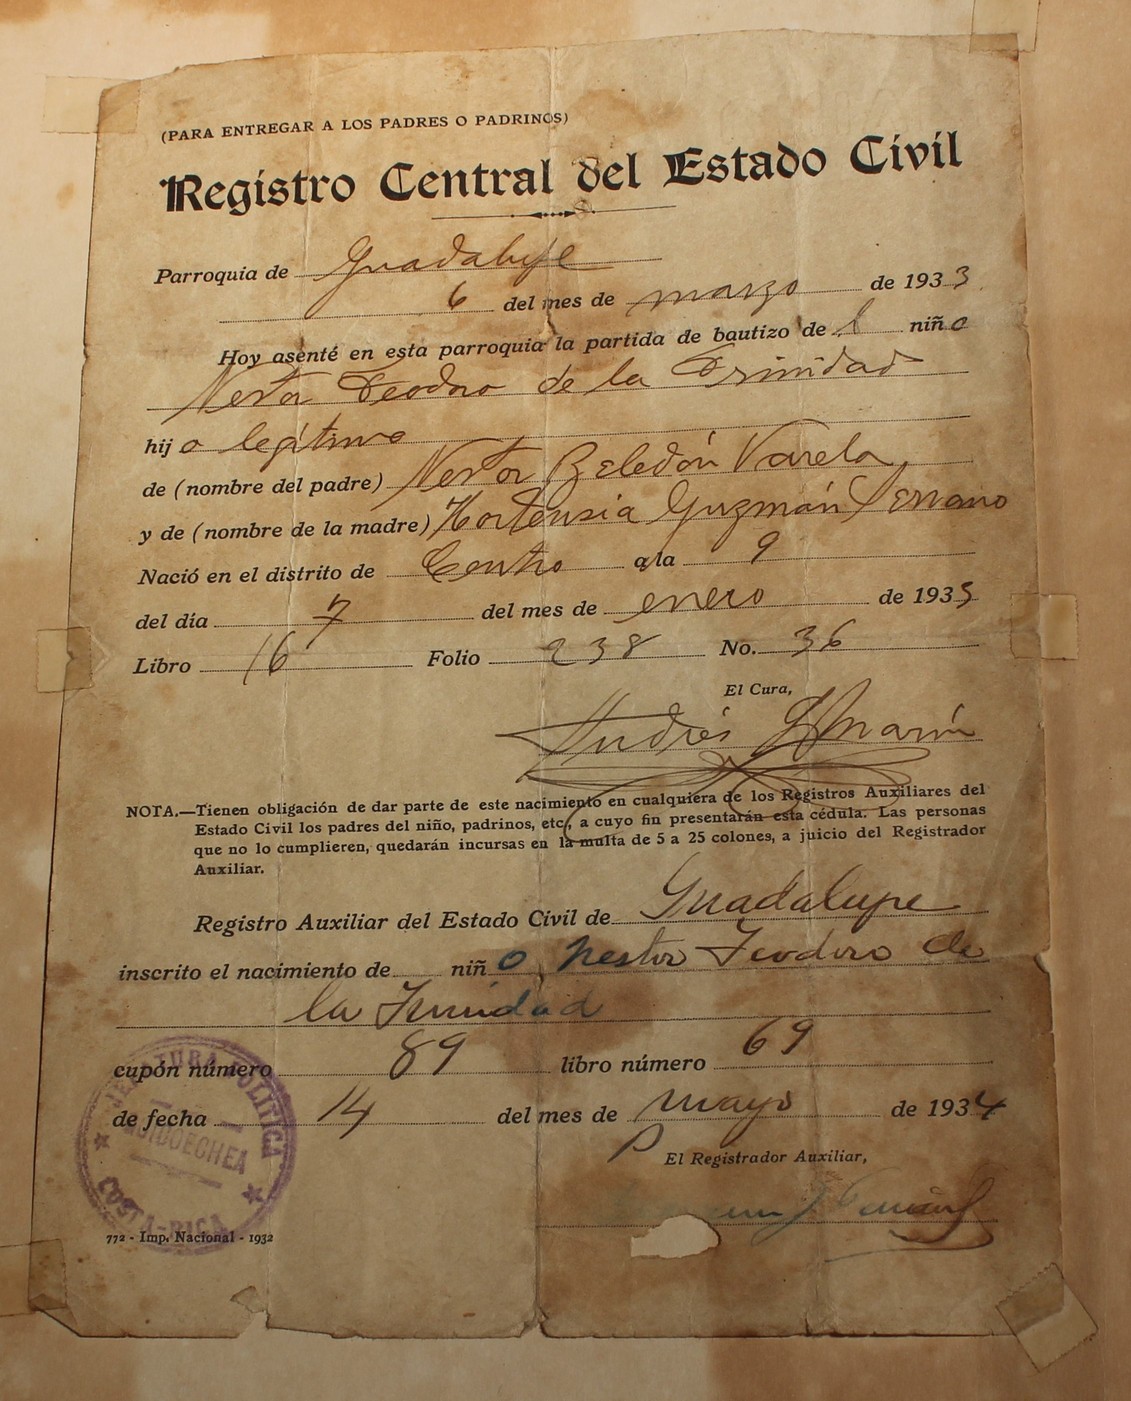 (PARA ENTREGAR A LOS PADRES O PADRINOS)
Registro Central del Estado Civil
Parroquia de Guadalupe
6 del mes de marzo de 1933
Hoy asenté en esta parroquia la partida de bautizo de l niño
Nestor Teodoro de la Trinidad
hijo legítimo
de (nombre del padre) Nestor Beledón Varela
y de (nombre de la madre) Hortensia Guzmán Serrano
Nació en el distrito de Centro a la 9
del día 7 del mes de enero de 193
Libro 16 Folio 238 No. 36
El Cura,
Andrés Marín
NOTA.—Tienen obligación de dar parte de este nacimiento en cualquiera de los Registros Auxiliares del
Estado Civil los padres del niño, padrinos, etc., a cuyo fin presentarán esta cédula. Las personas
que no lo cumplieren, quedarán incursas en la multa de 5 a 25 colones, a juicio del Registrador
Auxiliar.
Registro Auxiliar del Estado Civil de Guadalupe
inscrito el nacimiento de niño Nestor Teodoro de
la Trinidad
cupón número 89 libro número 69
de fecha 14 del mes de mayo de 1934
P El Registrador Auxiliar,
JEFATURA POLITICA
GOICOECHEA
COSTA-RICA
772 - Imp. Nacional - 1932